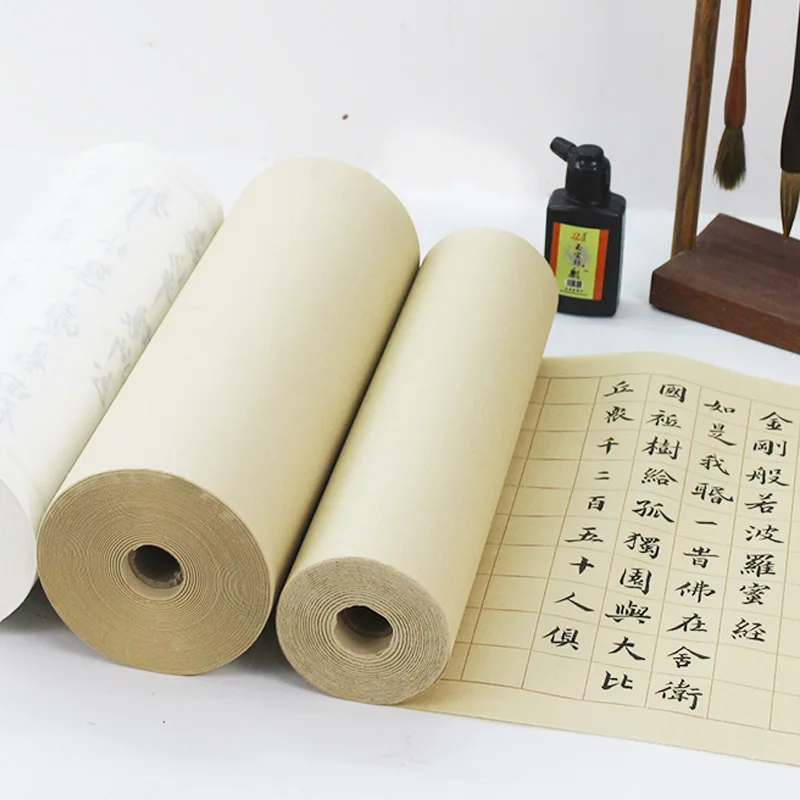 金剛般若波羅蜜經
如是我䎽一旹佛在舍衛
國祗樹給孤獨園與大比
丘眾千二百五十人俱